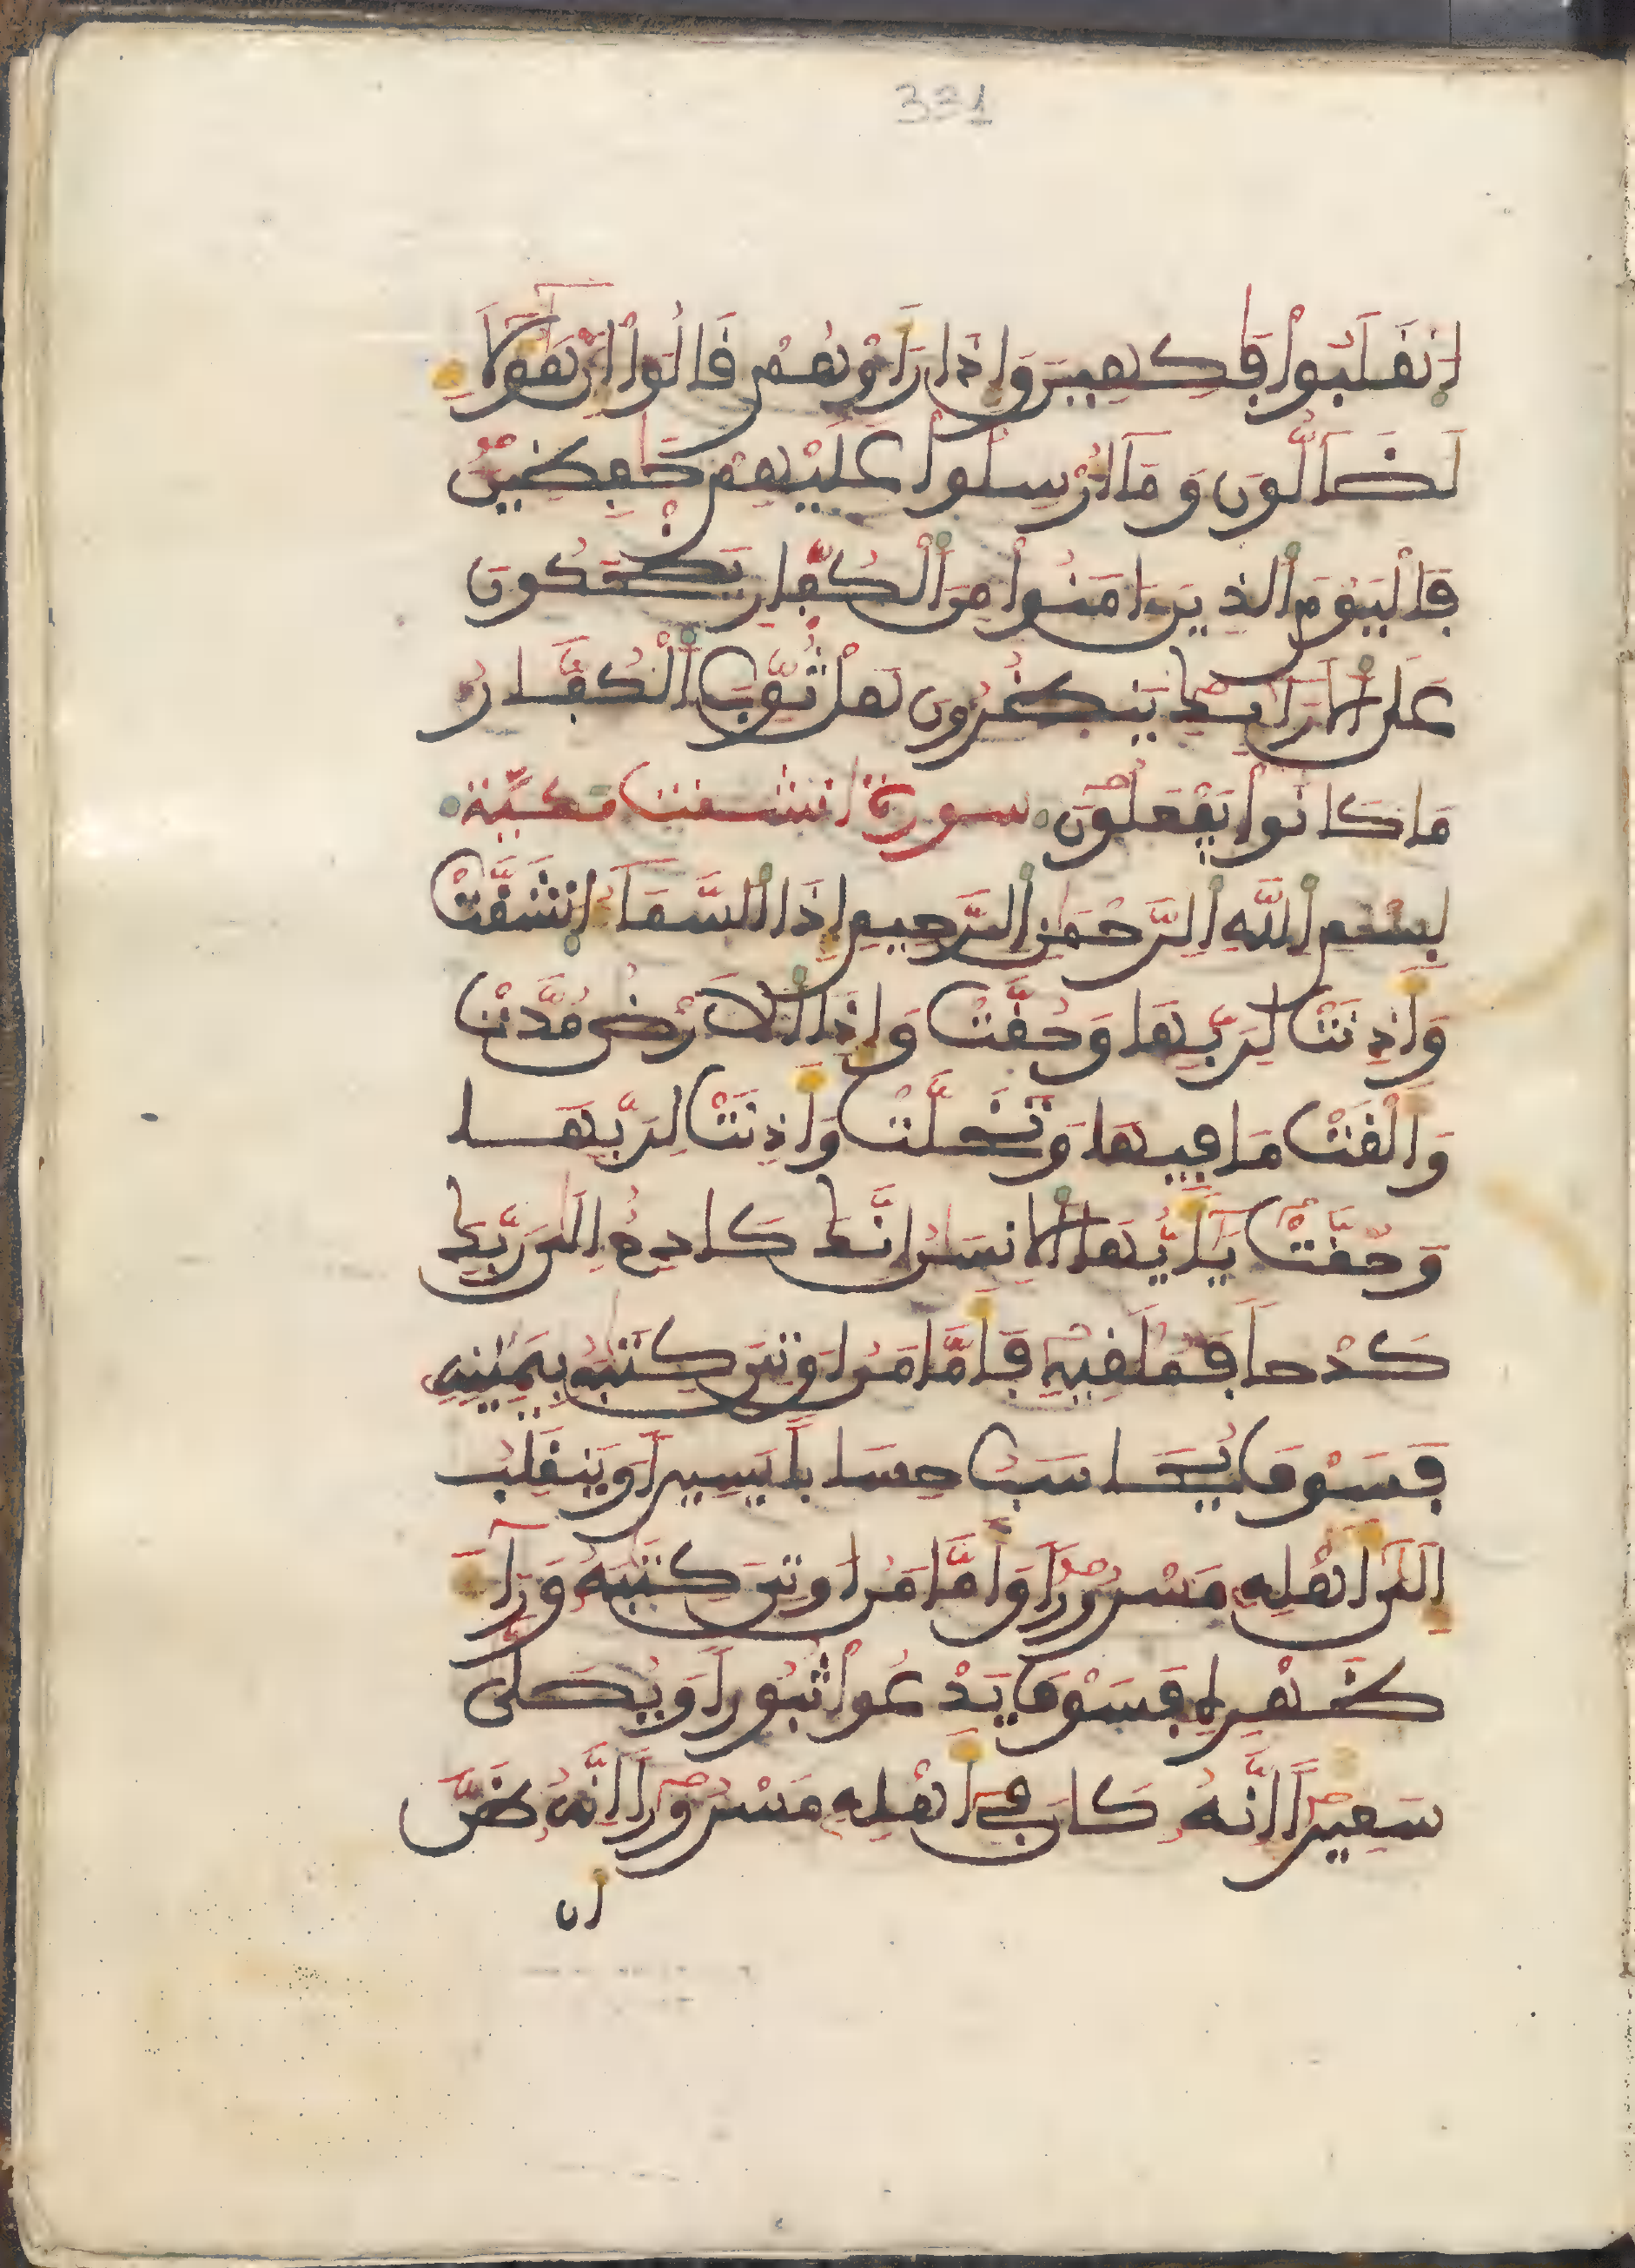 331
اِنفَلَبُواْ فَٰكِهِينَ وَإِذَا رَأَوْهُمْ فَالُوٓاْ إِنَّ هَٰٓؤُلَآءِ
لَضَآلُّونَ وَمَآ أُرْسِلُواْ عَلَيْهِمْ حَٰفِظِينَ
فَالْيَوْمَ ٱلذِينَ ءَامَنُواْ مِنَ ٱلْكُفّ۪ارِ يَضْحَكُونَ
عَلَى ٱلَارَآئِكِ يَنظُرُونَ هَلْ ثُوِّبَ ٱلْكُفَّارُ
مَا كَانُواْ يَفْعَلُونَ سورة انشفت مكية
بِسْمِ ٱللَّهِ ٱلرَّحْمَٰنِ ٱلرَّحِيمِ إِذَا ٱلسَّمَآءُ ٱنشَفَّتْ
وَأَذِنَتْ لِرَبِّهَا وَحُفَّتْ وَإِذَا ٱلَارْضُ مُدَّتْ
وَأَلْفَتْ مَا فِيهَا وَتَخَلَّتْ وَأَذِنَتْ لِرَبِّهَا
وَحُفَّتْ يَٰٓأَيُّهَا ٱلِانسَٰنُ إِنَّكَ كَادِحٌ إِلَىٰ رَبِّكَ
كَدْحاً فَمُلَٰفِيهِ فَأَمَّا مَنُ اوتِيَ كِتَٰبَهُۥ بِيَمِينِهِۦ
فَسَوْفَ يُحَاسَبُ حِسَاباً يَسِيراً وَيَنفَلِبُ
إِلَىٰٓ أَهْلِهِۦ مَسْرُوراً وَأَمَّا مَنُ اوتِيَ كِتَٰبَهُۥ وَرَآءَ
ظَهْرِهِۦ فَسَوْفَ يَدْعُواْ ثُبُوراً وَيُصَلَّىٰ
سَعِيراً إِنَّهُۥ كَانَ فِےٓ أَهْلِهِۦ مَسْرُوراً إِنَّهُۥ ظَنَّ
أن